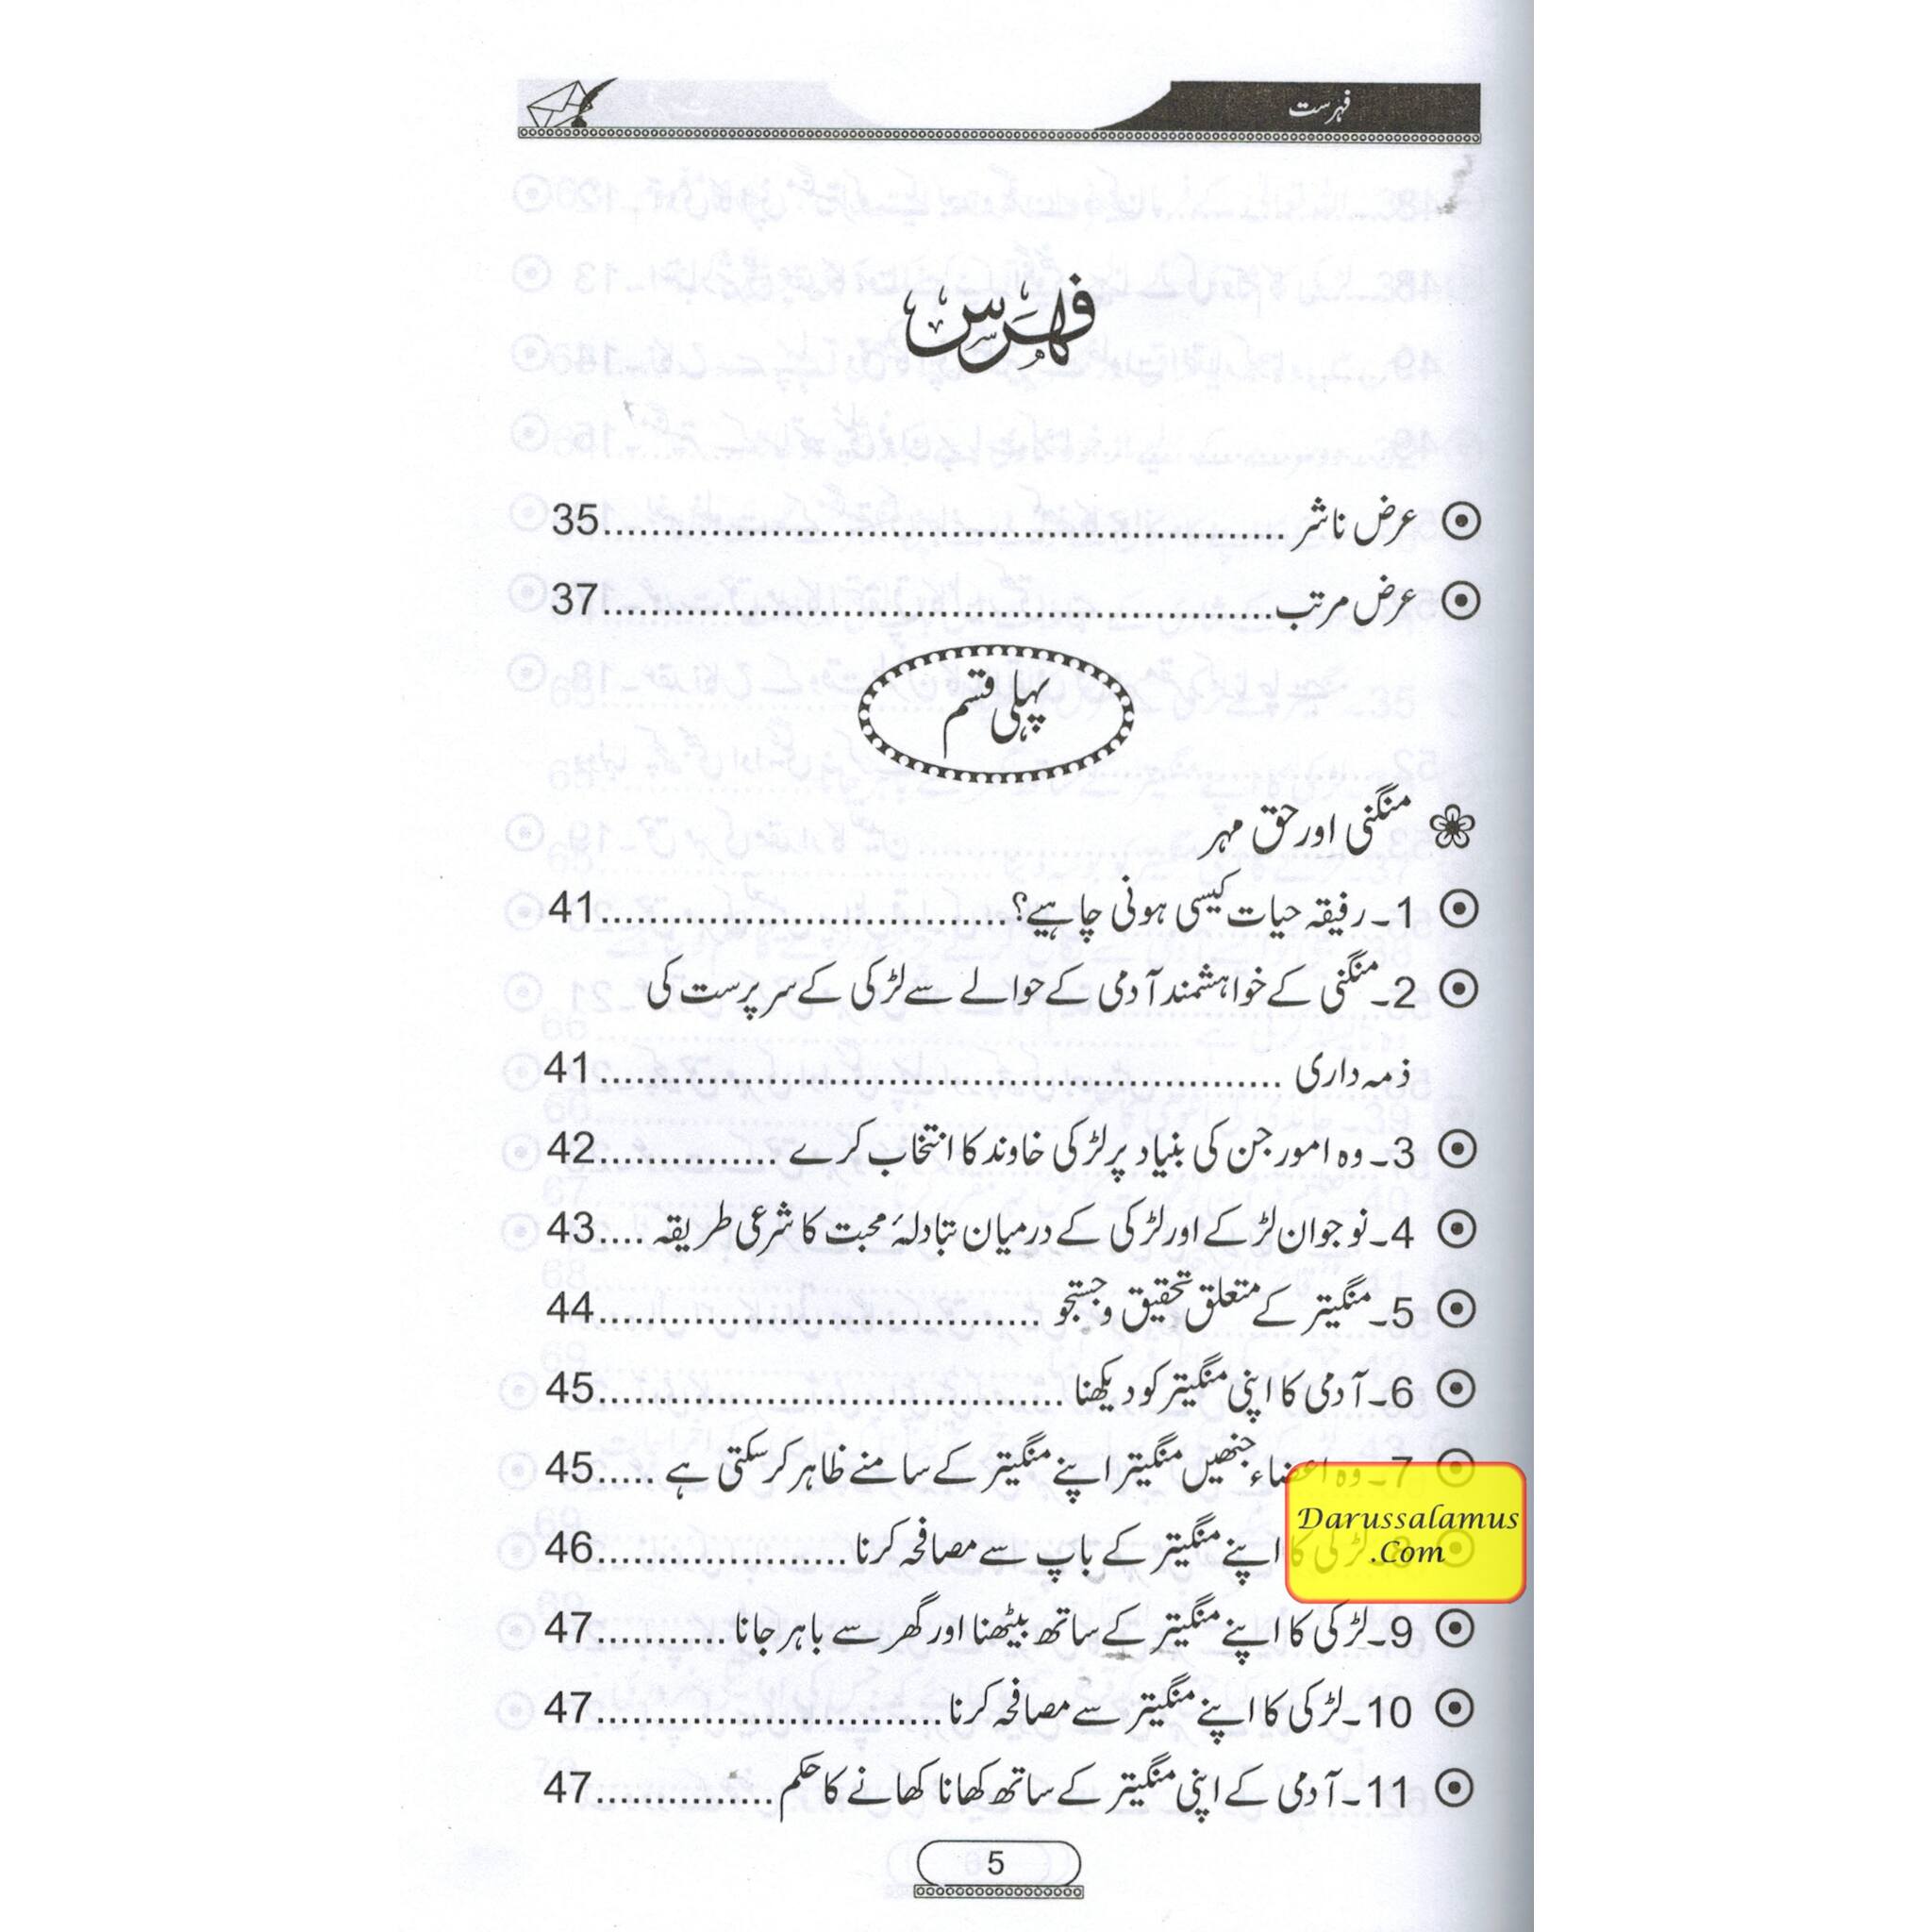 فہرست
فہرس
عرض ناشر ........................................................ 35
عرض مرتب ........................................................ 37
پہلی قسم
منگنی اور حق مہر
1۔ رفیقہ حیات کیسی ہونی چاہیے؟ .................................. 41
2۔ منگنی کے خواہشمند آدمی کے حوالے سے لڑکی کے سرپرست کی
ذمہ داری ........................................................ 41
3۔ وہ امور جن کی بنیاد پر لڑکی خاوند کا انتخاب کرے ............... 42
4۔ نوجوان لڑکے اور لڑکی کے درمیان تبادلۂ محبت کا شرعی طریقہ .... 43
5۔ منگیتر کے متعلق تحقیق و جستجو ..................................... 44
6۔ آدمی کا اپنی منگیتر کو دیکھنا ....................................... 45
7۔ وہ اعضاء جنھیں منگیتر اپنے منگیتر کے سامنے ظاہر کر سکتی ہے ..... 45
8۔ لڑکی کا اپنے منگیتر کے باپ سے مصافحہ کرنا ..................... 46
Darussalamus
.Com
9۔ لڑکی کا اپنے منگیتر کے ساتھ بیٹھنا اور گھر سے باہر جانا ........... 47
10۔ لڑکی کا اپنے منگیتر سے مصافحہ کرنا ............................. 47
11۔ آدمی کے اپنی منگیتر کے ساتھ کھانا کھانے کا حکم ............... 47
5